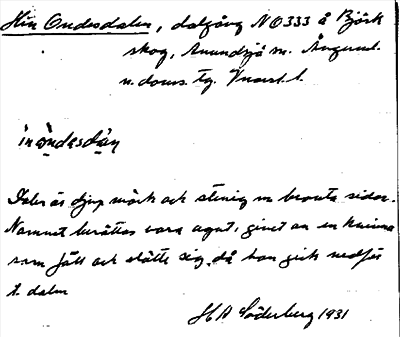 Hin Ondesdalen, dalgång NO 333 å Björk
skog, Anundsjö sn. Ångerml.
n. doms. tg. Vnorrl. l.
inɷndesdán
Dalen är djup mörk och stenig m branta sidor.
Namnet berättas vara ngnt. givet av en kvinna
som föll och slätte sig, då hon gick nedför
t. dalen
H A Söderberg 1931